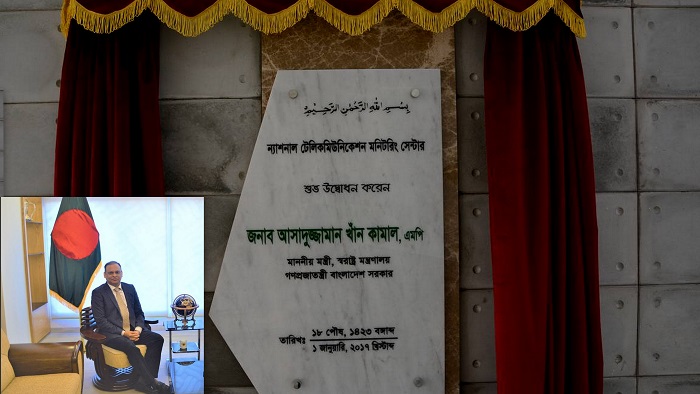 بِسْمِ اللهِ الرَّحْمٰنِ الرَّحِيْمِ
ন্যাশনাল টেলিকমিউনিকেশন মনিটরিং সেন্টার
শুভ উদ্বোধন করেন
জনাব আসাদুজ্জামান খাঁন কামাল, এমপি
মাননীয় মন্ত্রী, স্বরাষ্ট্র মন্ত্রণালয়
গণপ্রজাতন্ত্রী বাংলাদেশ সরকার
তারিখঃ ১৮ পৌষ, ১৪২৩ বঙ্গাব্দ
১ জানুয়ারি, ২০১৭ খ্রিস্টাব্দ